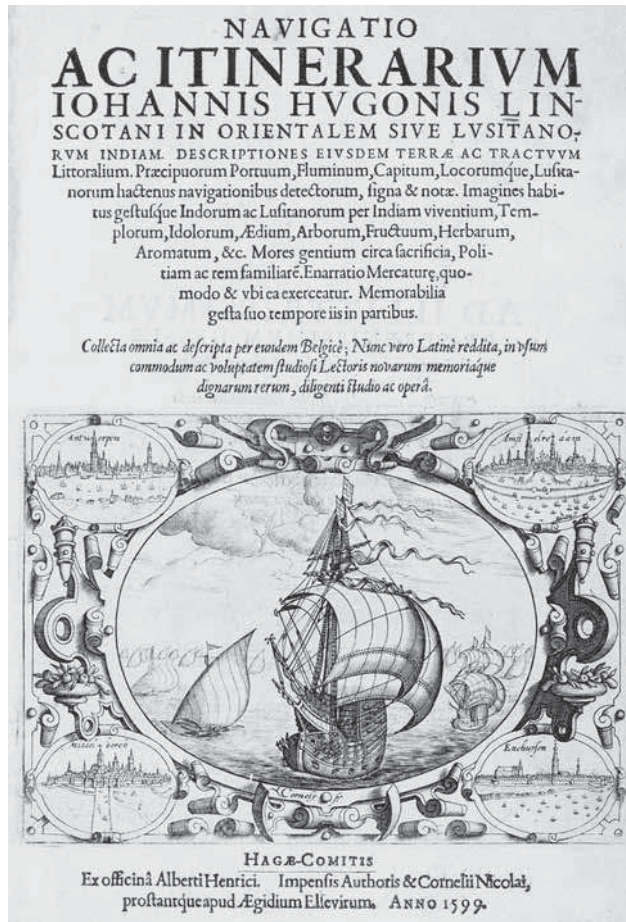 NAVIGATIO
AC ITINERARIVM
IOHANNIS HVGONIS LIN-
SCOTANI IN ORIENTALEM SIVE LVSITANO-
RVM INDIAM. DESCRIPTIONES EIVSDEM TERRÆ AC TRACTVVM
Littoralium. Præcipuorum Portuum, Fluminum, Capitum, Locorumque, Lusita-
norum hactenus navigationibus detectorum, signa & notæ. Imagines habi-
tus gestusque Indorum ac Lusitanorum per Indiam viventium, Tem-
plorum, Idolorum, Ædium, Arborum, Fructuum, Herbarum,
Aromatum, &c. Mores gentium circa sacrificia, Poli-
tiam ac rem familiarē. Enarratio Mercaturę, quo-
modo & vbi ea exerceatur. Memorabilia
gesta suo tempore iis in partibus.
Collecta omnia ac descripta per eundem Belgicè; Nunc vero Latinè reddita, in vsum
commodum ac voluptatem studiosi Lectoris novarum memoriaque
dignarum rerum, diligenti studio ac operâ.
Antwerpen
Amstelredam
Middelborch
Enchuysen
HAGÆ-COMITIS
Ex officinâ Alberti Henrici. Impensis Authoris & Cornelii Nicolai,
prostantque apud Ægidium Elsevirum. ANNO 1599.